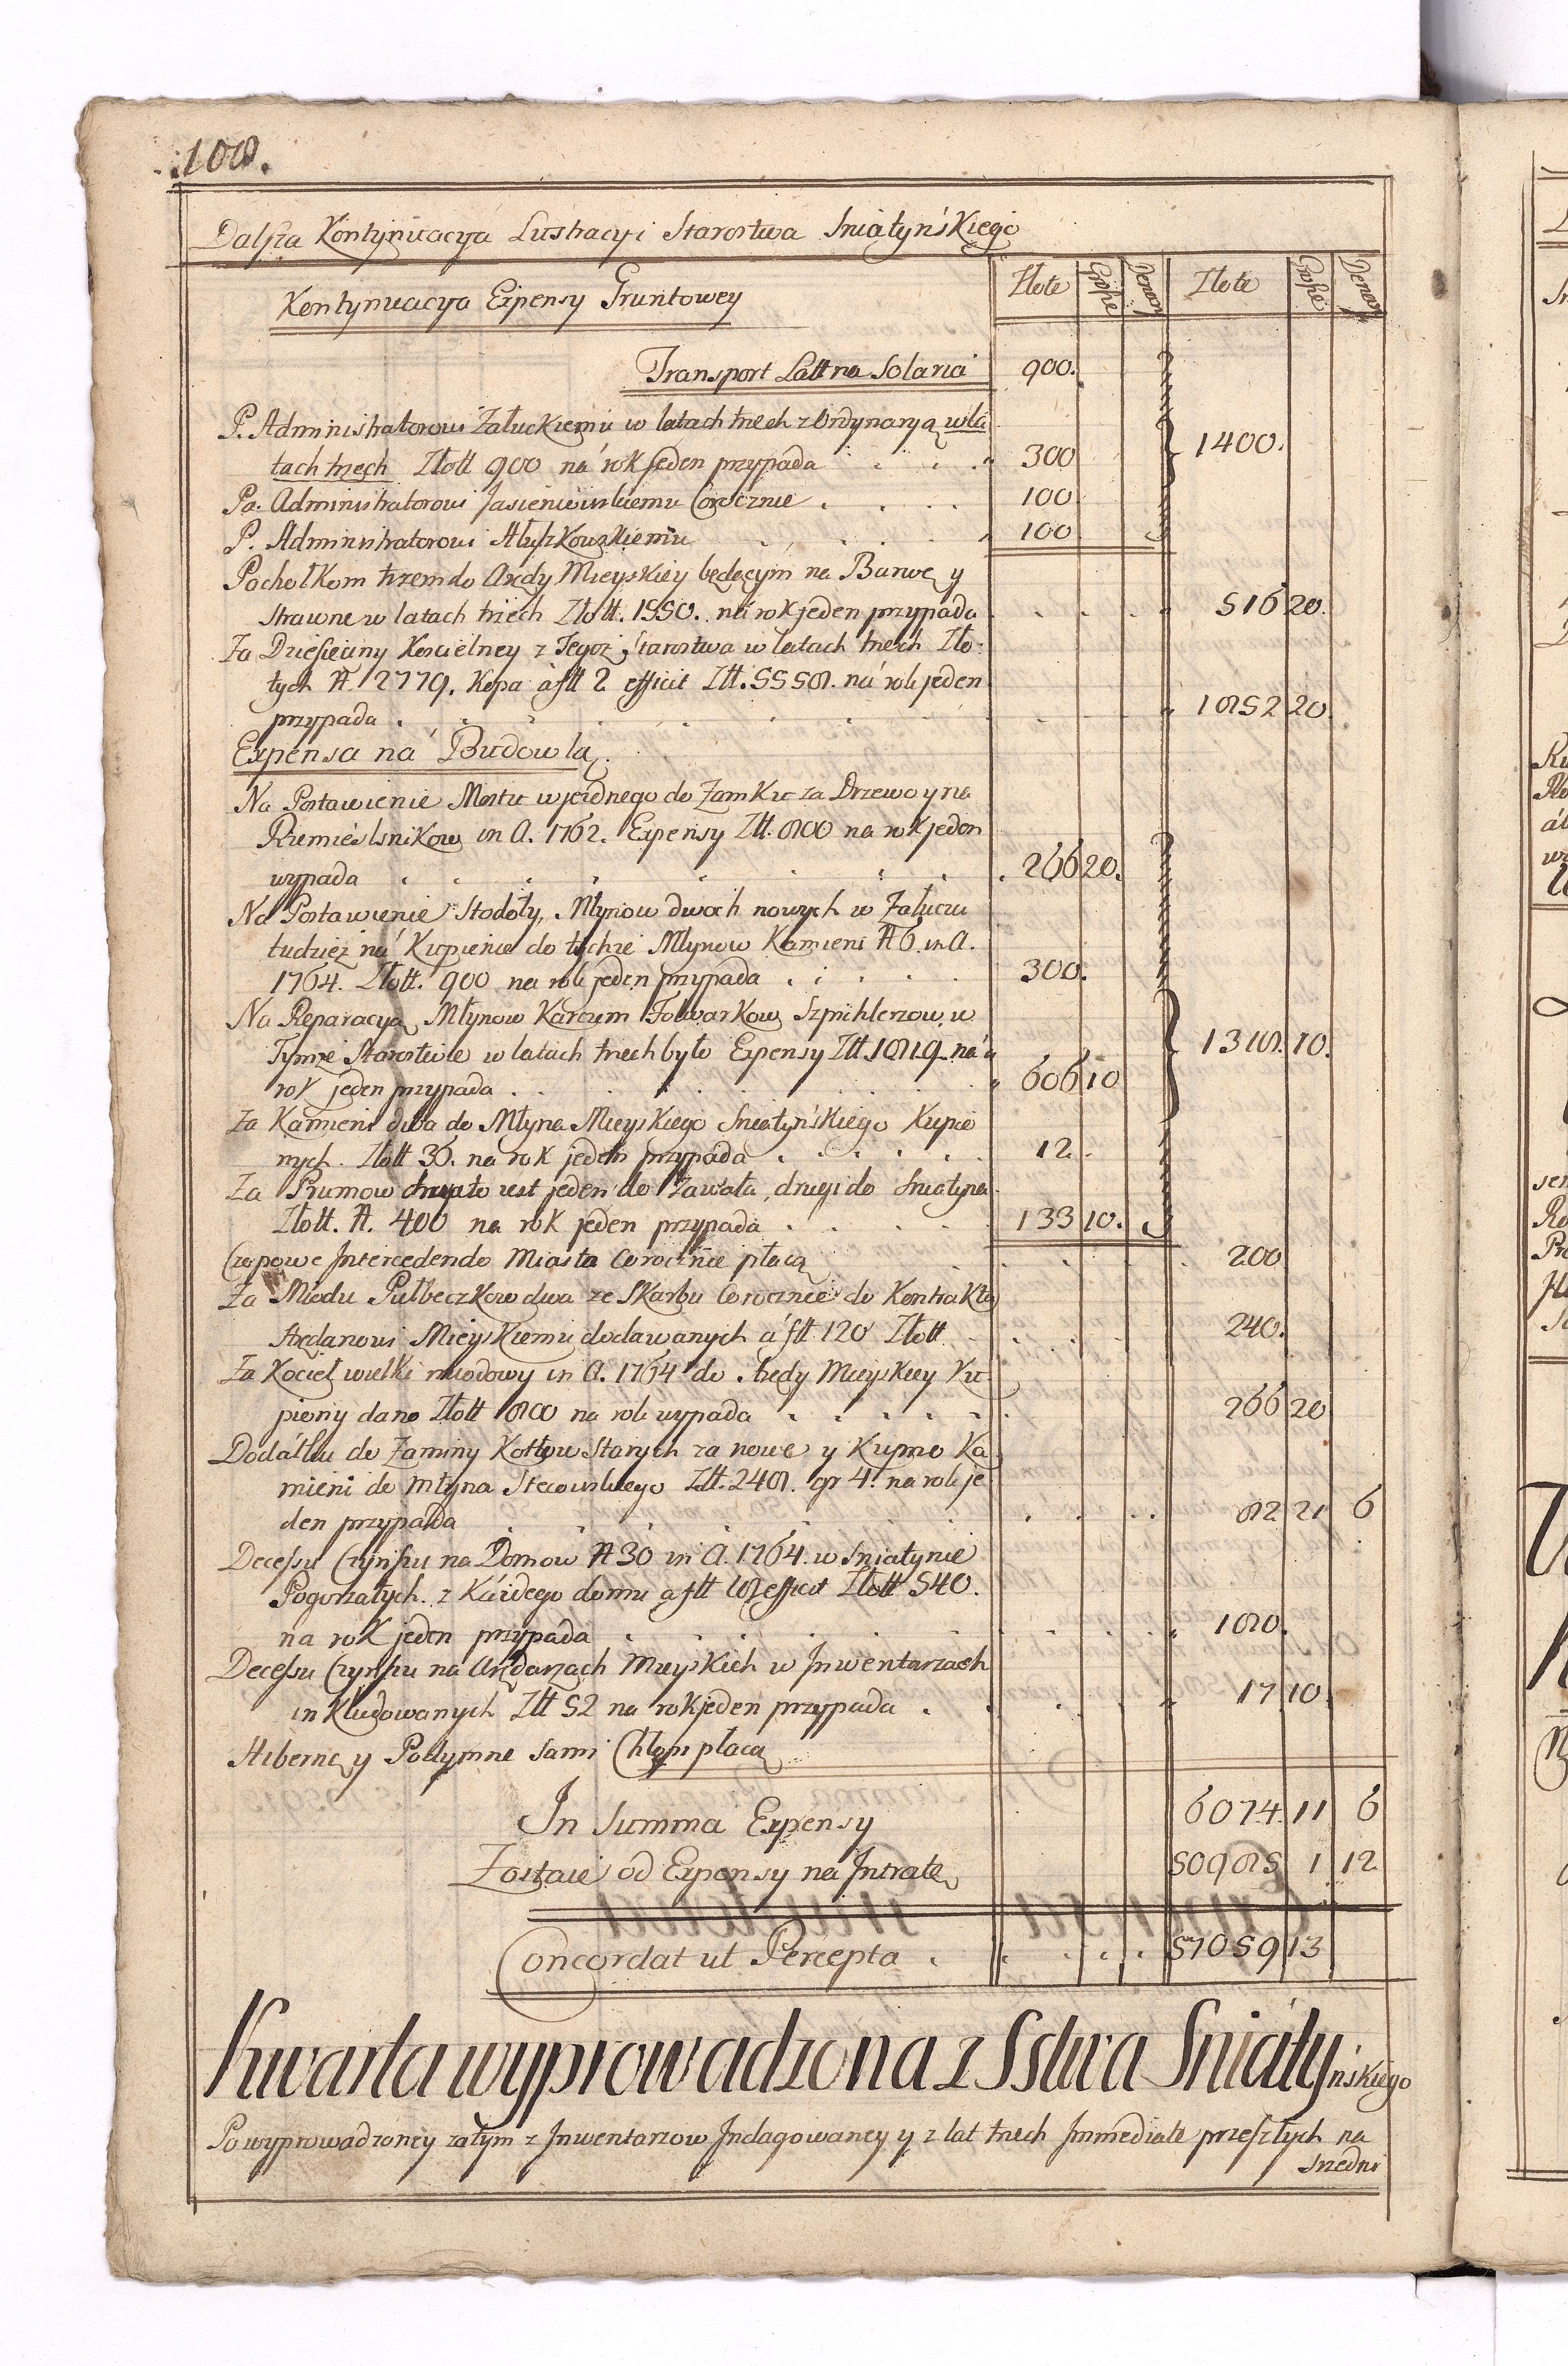 108.
Dalsza Kontynuacya Lustracyi Starostwa Sniatyńskiego
Kontynuacya Expensy Gruntowey Złote Grosze Denary Złote Grosze Denary
Transport Latt na Solaria 900.
P. Administratorowi Załuckiemu w latach trzech z Ordynaryą w la
tach trzech Złott 900 na rok jeden przypada 300 1400.
Pa. Administratorowi Jasieniewskiemu Corocznie 100
P. Administratorowi Hłuszkowskiemu 100
Pachołkom trzem do Arędy Mieyskiey będącym na Barwę y
Strawne w latach trzech Złott. 1550. na rok jeden przypada 516 20.
Za Dziesieciny Koscielney z Tegoż Starostwa w latach trzech Zło-
tych # 2779. Kopa a fll 2 efficit Złt. 5558. na rok jeden
przypada 1852 20.
Expensa na Budowlą.
Na Postawienie Mostu wjezdnego do Zamku za Drzewo y na
Rzemieslnikow in A. 1762. Expensy Złt. 800 na rok jeden
wypada 266 20.
Na Postawienie Stodoły, Młynow dwoch nowych w Załuczu
tudzież na Kupienie do tychże Młynow Kamieni # 6 in A.
1764. Złott. 900 na rok jeden przypada 300.
Na Reparacyą Młynow Karczem Folwarkow Szpichlerzow w
Tymże Starostwie w latach trzech było Expensy Złt. 1819 na 1318. 10.
rok jeden przypada 606 10
Za Kamieni dwa do Młyna Mieyskiego Sniatyńskiego Kupio
nych. Złott 36. na rok jeden przypada 12.
Za Prumow to iest jeden do Zawala, drugi do Sniatyna
Złott. #. 400 na rok jeden przypada 133 10.
Czopowe Intercedendo Miasta Corocznie płacą 200
Za Miodu Pułbeczkow dwa ze Skarbu Corocznie do Kontraktu
Arędarzowi Mieyskiemu dodawanych á fll 120 Złott 240.
Za Kocieł wielki miodowy in A. 1764 do Arędy Mieyskiey Ku-
piony dano Złott 800 na rok wypada 266 20
Dodatku do Zaminy Kotłow Starych za nowe y Kupno Ka
mieni do młyna Stecowskiego Złt. 248. gr 4. na rok je
den przypada 82 21 6
Decessu Czynszu na Domow # 30 in A. 1764. w Sniatynie
Pogorzałych. z Każdego domu a fll 18 efficit Złott 540.
na rok jeden przypada 180.
Decessu Czynszu na Arędarzach Mieyskich w Inwentarzach
in Kludowanych Złt 52 na rok jeden przypada 17 10.
Hibernę y Podymne Sami Chłopi płacą
In Summa Expensy 6074. 11 6
Zostaie od Expensy na Intratę 50985 1 12
Concordat ut Percepta 57059 13
Kwarta wyprowadzona z Sstwa Sniatyńskiego
Po wyprowadzoney zatym z Inwentarzow Indagowaney y z lat trzech Immediate przeszłych na
srzedni